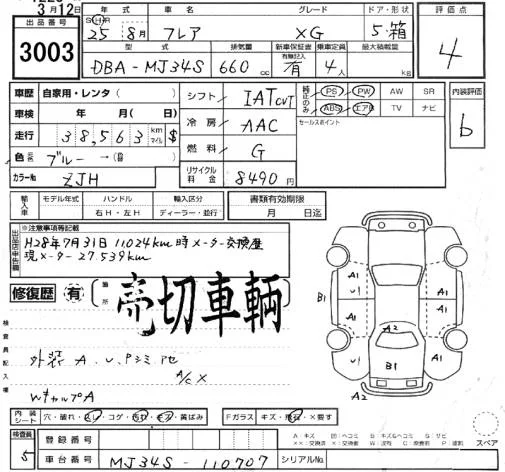 3月12日
出品番号 年式 車名 グレード ドア・形状 評価点
3003 SHR 25年 8月 フレア XG 5 箱 4
型式 排気量 新車保証書 有無記入 乗車定員 最大積載量
DBA-MJ34S 660 cc 有 4人 kg
車歴 自家用・レンタ( ) シフト IAT CVT 純正のみ PS PW AW SR 内装評価
車検 年 月( 日) 冷房 AAC ABS エアB TV ナビ b
走行 38,563 km マイル $ 燃料 G セールスポイント
色 ブルー → (替)
カラーNo ZJH リサイクル料金 8490円
輸入車 モデル年式 ハンドル 輸入区分 書類有効期限
右H・左H ディーラー・並行 月 日迄
出品店申告欄 ※注意事項等記載
H28年7月31日 11024km時メーター交換歴
現メーター27.539km
修復歴 有 箇所 売切車輌
検査員記入欄
外装 A、U、Pシミ アセ
A/C X
WキャルプA
A1 A1
U1 U1
B1 A2 B1
U1 U1
A1 A1
A2
内装シート 穴・破れ・シミ・コゲ・汚れ・キズ・黄ばみ Fガラス キズ・飛石・×要す
検査員 5 登録番号
A キズ U 凹ヘコミ B キズ&ヘコミ S サビ
××:交換済 X:交換跡 W:波 C:腐食 P:塗割
スペア
車台番号 MJ34S-110707 シリアルNo.